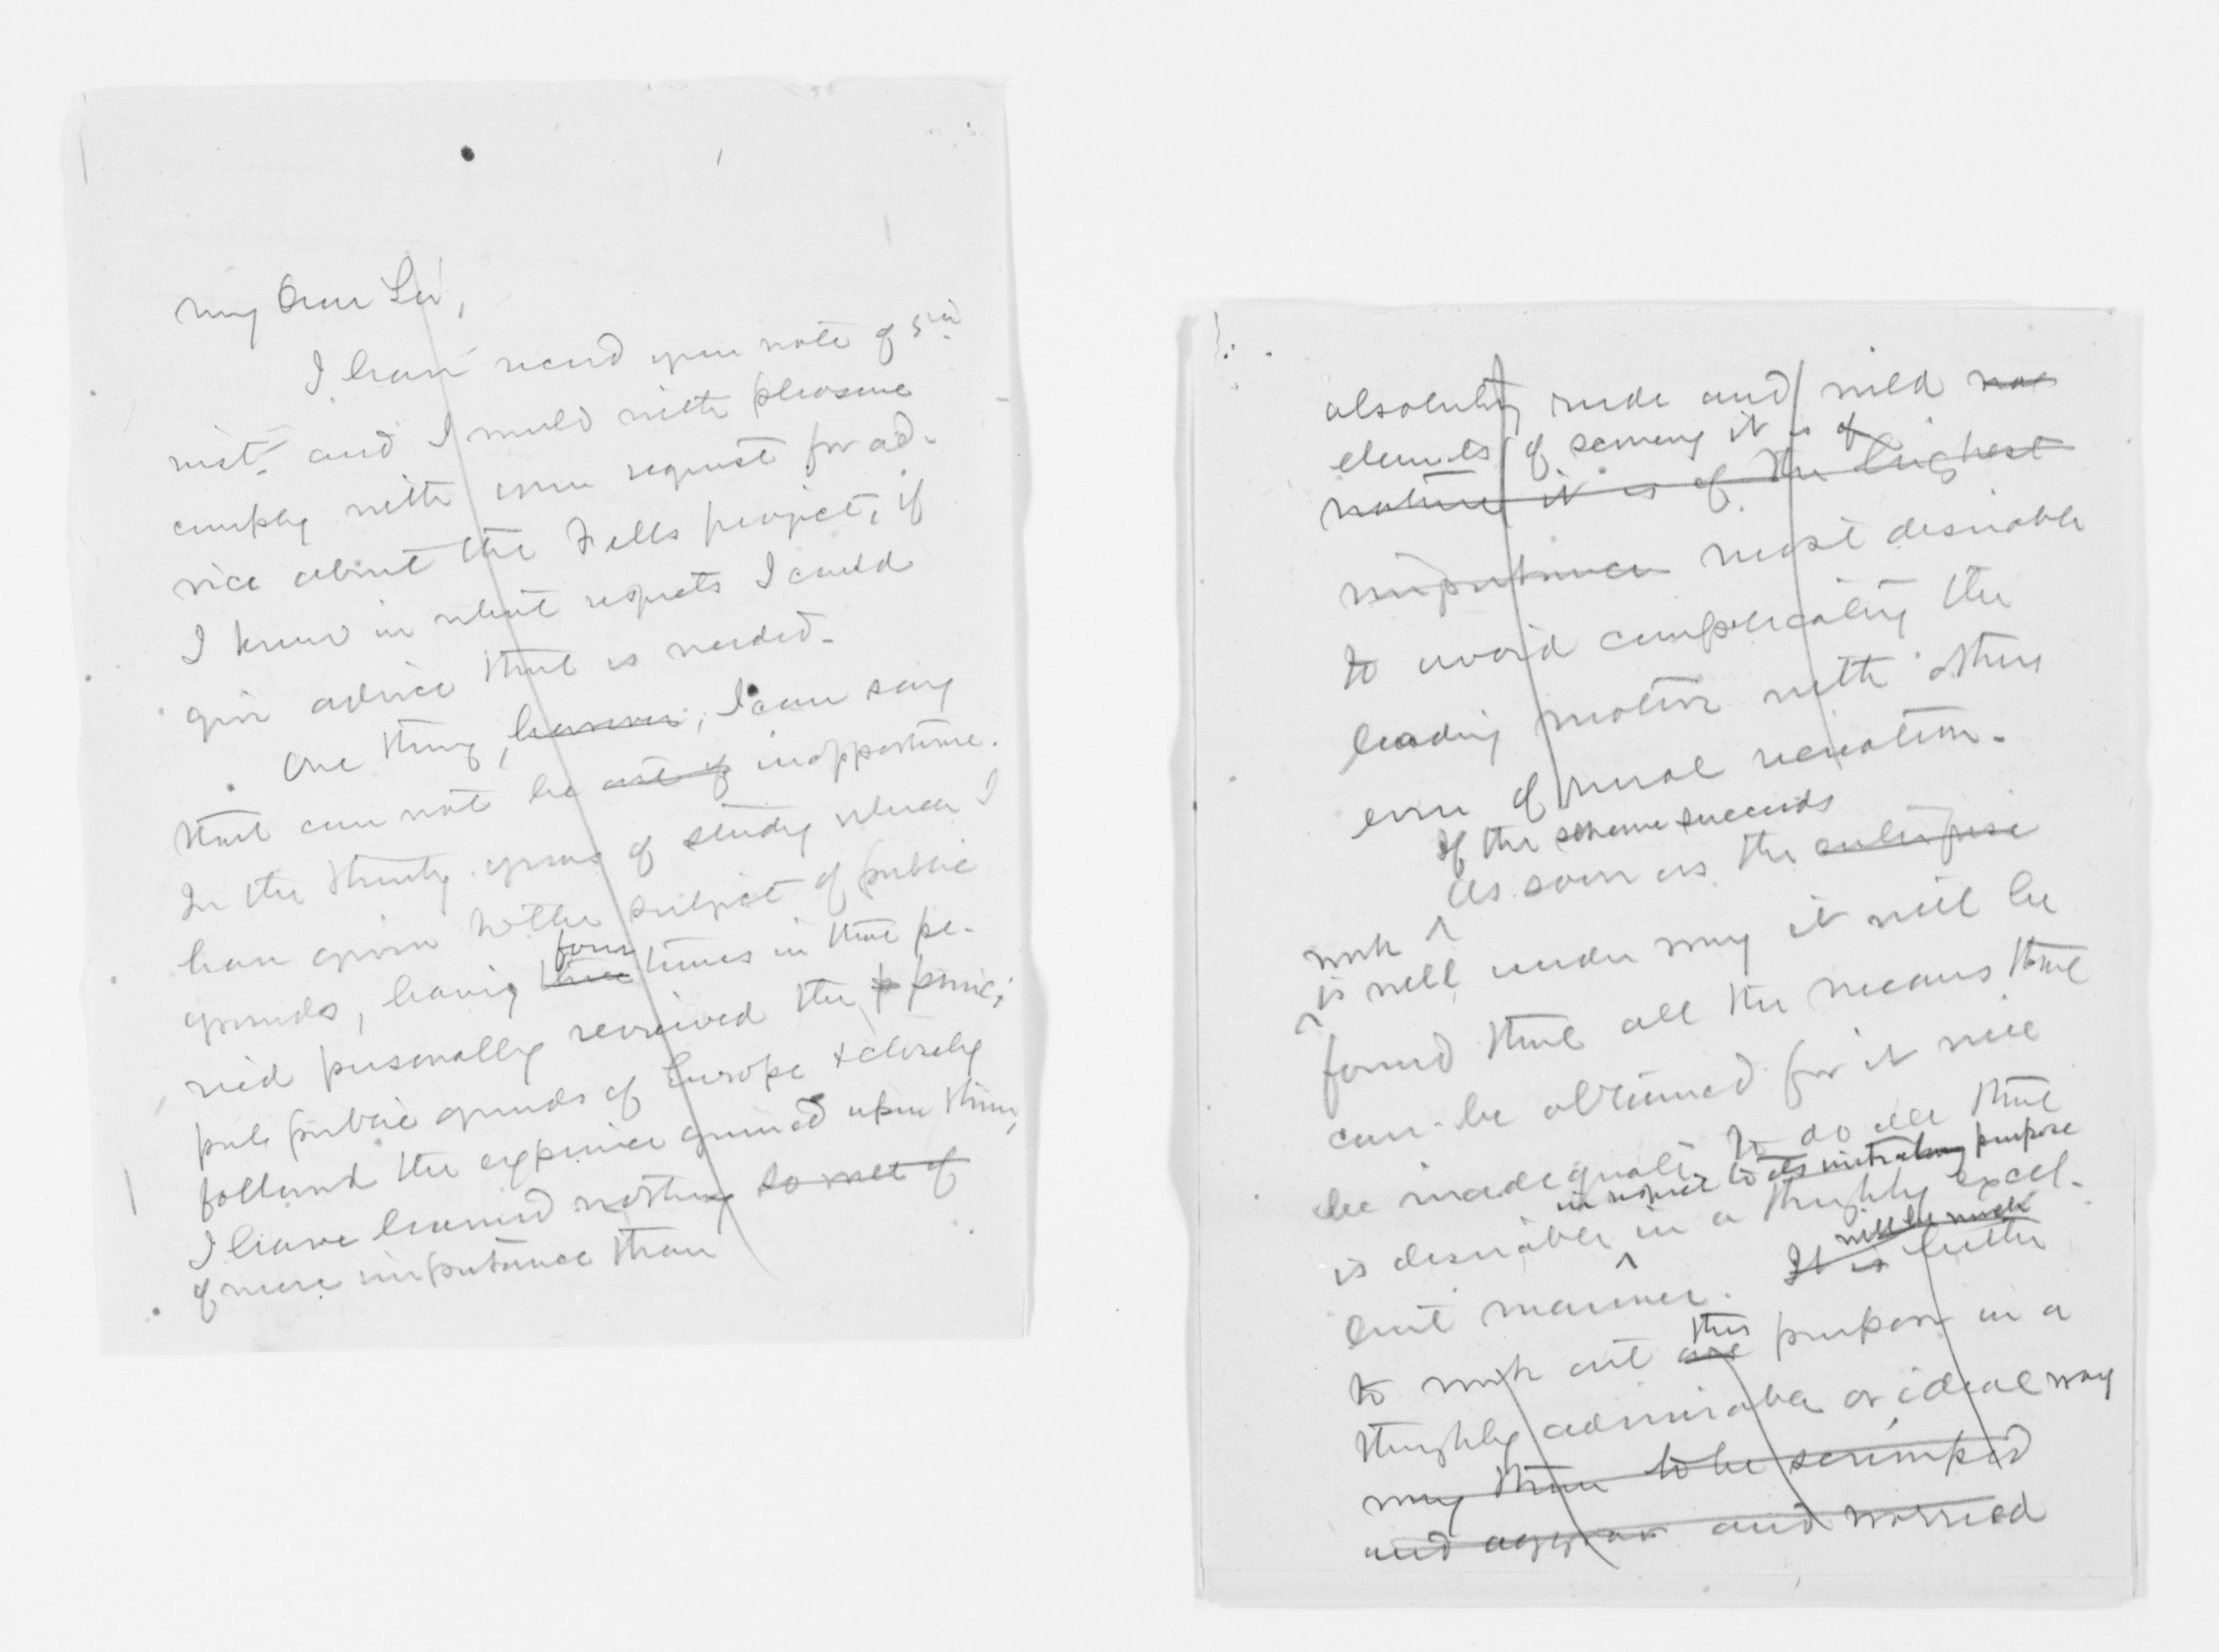 My Dear Sir,
I have recvd your note of 5th
inst. and I would with pleasure
comply with your request for ad-
vice about the Fells project, if
I knew in what respects I could
give advice that is needed.
One thing, however, I can say
that can not be out of inopportune.
In the thirty years of study which I
have given to the subject of public
four
grounds, having three times in that pe-
riod personally reviewed the p princi
pal public grounds of Europe & closely
followed the experience gained upon them,
I have learned nothing to me of
of more importance than
absolutely rude and wild
elements of scenery it is of
nature it is of the highest
importance most desirable
to avoid complicating the
leading motive with others
even of rural recreation.
If the scheme succeeds
As soon as the enterprise
work
is well under way it will be
found that all the means that
can be obtained for it will
be inadequate to do all that
in respect to its undertaking purpose
is desirable in a thoughly excel-
will be much
lent manner. It is better
this
to work out one purpose in a
thoughly admirable or ideal way
way than to be scrimped
and and worried